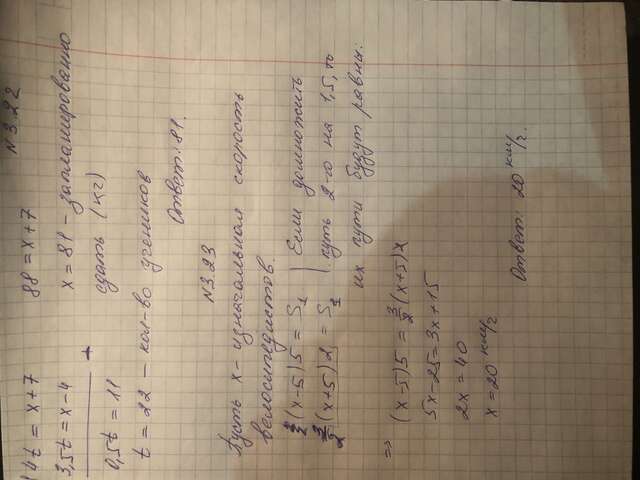 4t = x+7
3,5t = x-4
0,5t = 11
t = 22 - кол-во учеников
N 3.22
88 = x+7
x = 81 - запланированно
сдать (кг)
Ответ: 81.
N 3.23
Пусть x - изначальная скорость
велосипедистов.
(x-5)5 = S₁
(x+5)2 = S₂
Если домножить
путь 2-го на 1,5, то
их пути будут равны:
=>
(x-5)5 = 3/2(x+5)2
5x-25=3x+15
2x = 40
x = 20 км/ч
Ответ: 20 км/ч.